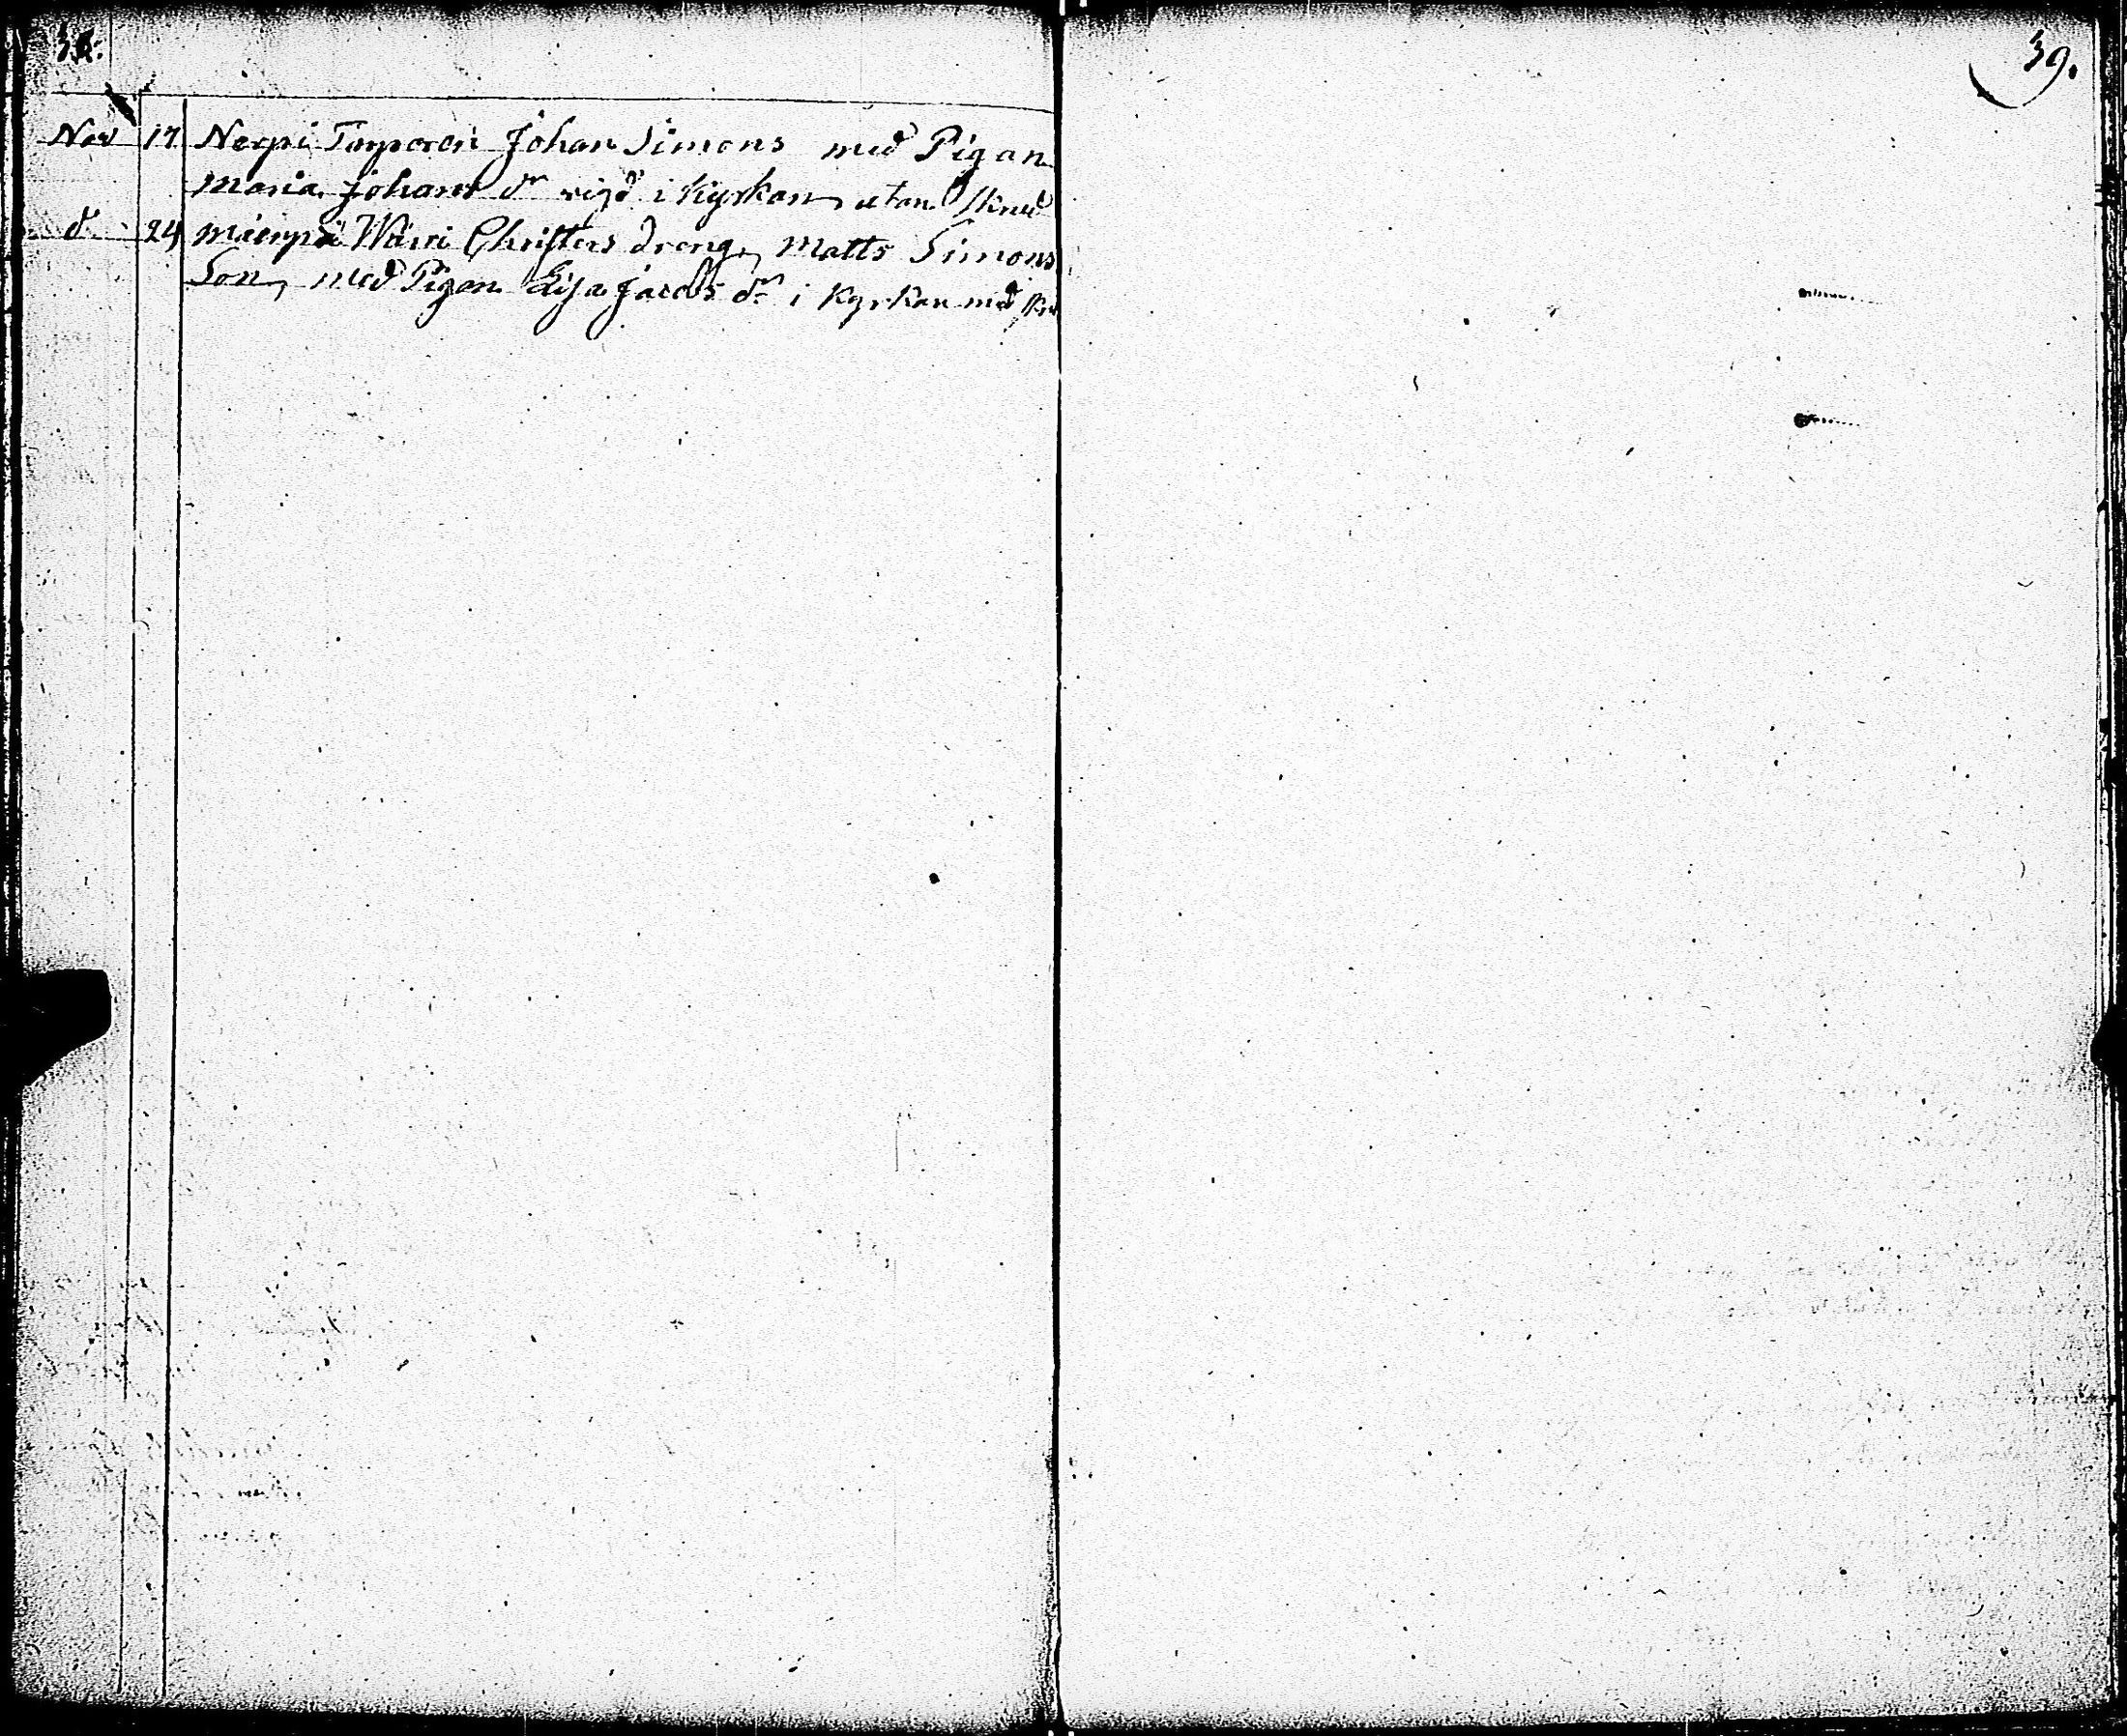 38.
39.
Nov 17 Nerpi Timperen Johan Simons med Pigan
Maria Johans dr vigd i Kyrkan utan skrud
d. 24 Mäenpä Christers dreng, Matts Simons
Son, med Pigan Lisa Jacobs dr i Kyrkan med skr